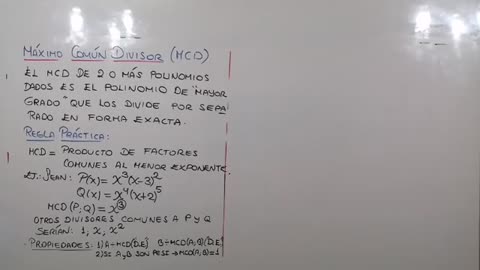 MÁXIMO COMÚN DIVISOR (MCD)
EL MCD DE 2 O MÁS POLINOMIOS
DADOS ES EL POLINOMIO DE "MAYOR
GRADO" QUE LOS DIVIDE POR SEPA
RADO EN FORMA EXACTA.
REGLA PRÁCTICA:
MCD = PRODUCTO DE FACTORES
COMUNES AL MENOR EXPONENTE.
EJ.: SEAN: P(x) = x³(x-3)²
Q(x) = x⁴(x+2)⁵
MCD(P;Q) = x³
OTROS DIVISORES COMUNES A P y Q
SERÍAN: 1, x, x²
PROPIEDADES: 1) A÷MCD(A;B) B÷MCD(A;B)
2) SI A y B SON PESI → MCD(A;B)=1